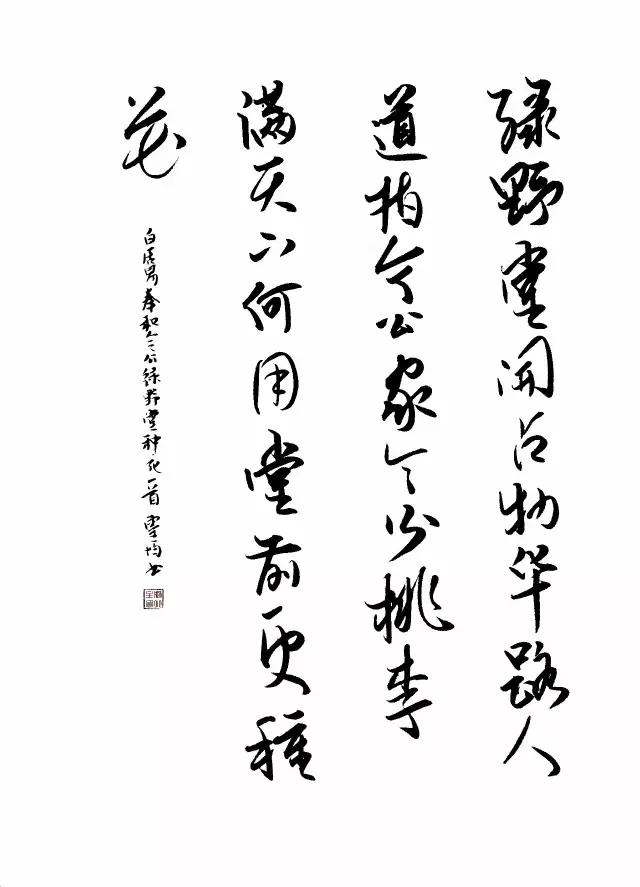 绿野堂開占物华路人
道指令公家令公桃李
满天下何用堂前更種
花
白居易奉和令公绿野堂种花一首 均书